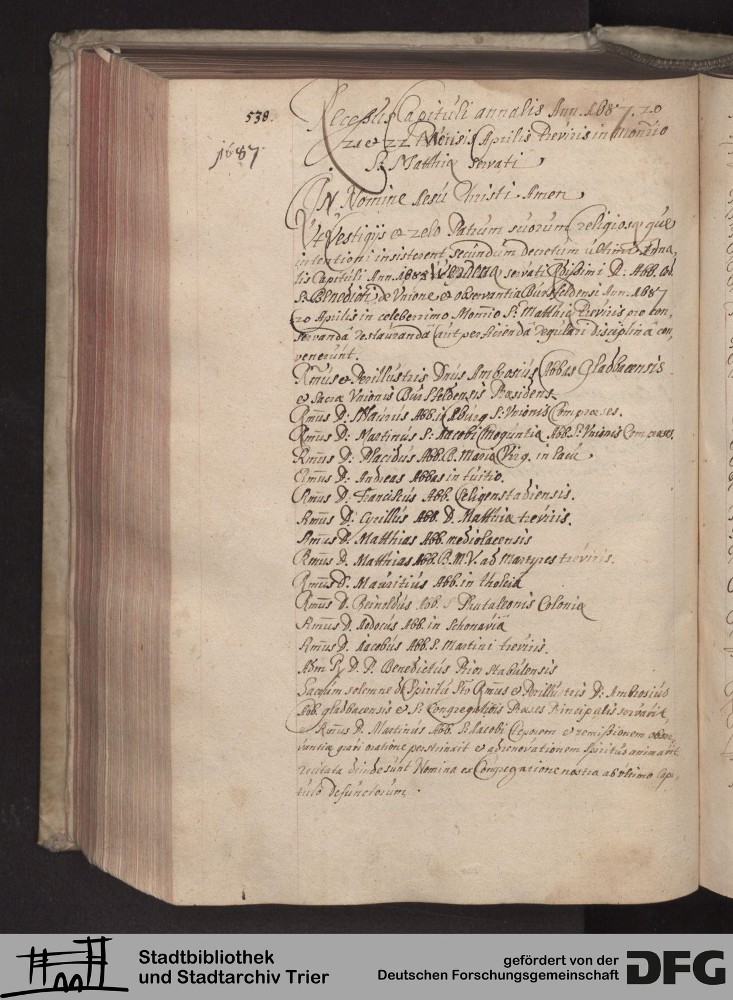 538.
1687
Recessus Capituli annalis Ann. 1687. 20
21 et 22 Mensis Aprilis Treviris in Monrio
S. Matthiæ servati
IN Nomine Jesu Christi Amen
Ut Vestigijs et zelo Patrum suorum religiosæque
intentioni insisterent, secundum Decretum ultimi Anna,
lis Capituli Ann. servati Rssimi D. Abb. Ord.
S. Benedicti de Unione et observantia Bursfeldensi Ann. 1687
20 Aprilis in celeberrimo Monrio S. Matthiæ Treviris pro con,
servanda restauranda aut perficienda regulari disciplinâ con,
venerunt.
Rmus et Perillustris Dnus Ambrosius Abbas Gladbacensis
et Sacræ Unionis Bursfeldensis Præsidens.
Rmus D: Maurus Abb. S: Unionis Compræses.
Rmus D: Martinus S: Jacobi Moguntiæ Abb. S: Unionis Compræses.
Rmus D: Placidus Abb. B. Mariæ Virg. in Lacu
Rmus D: Andreas Abbas in tuitio.
Rmus D: Franciscus Abb. Seligenstadiensis.
Rmus D: Cyrillus Abb. D. Matthiæ treviris.
Rmus D. Matthias Abb. mediolacensis
Rmus D. Matthias Abb. B. M. V. ad Martyres treviris.
Rmus D. Mauritius Abb. in tholeia
Rmus D. Reinoldus Abb. S. Pantaleonis Coloniæ
Rmus D. Jodocus Abb. in Schonaviâ
Rmus D. Jacobus Abb. S. Martini treviris.
Adm R. D. P. Benedictus Prior stabulensis
Sacrum solemne de Spiritu Sto Rmus et Perillustris D: Ambrosius
Abb. gladbacensis et S. Congregationis Præses Principalis servavit,
Rmus D. Martinus Abb. S. Jacobi teporem et remissionem obser,
vantiæ gravi oratione perstrinxit et ad renovationem spiritus animavit
recitata deinde sunt Nomina ex Congregatione nostra ab ultimo Capi,
tulo defunctorum.
Stadtbibliothek
und Stadtarchiv Trier
gefördert von der
Deutschen Forschungsgemeinschaft
DFG